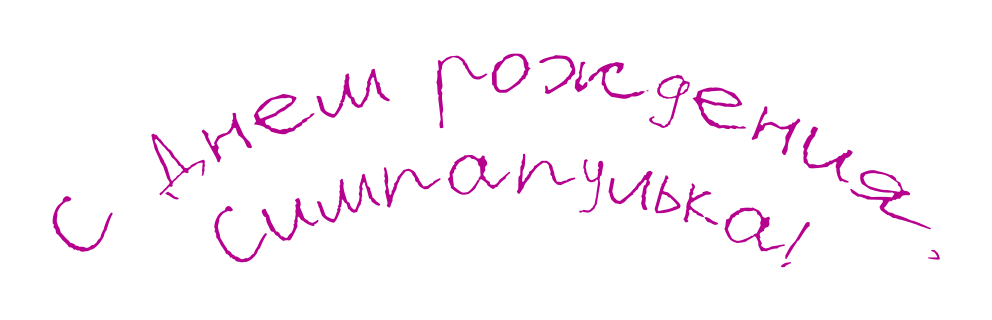 С Днем рождения,
симпапулька!